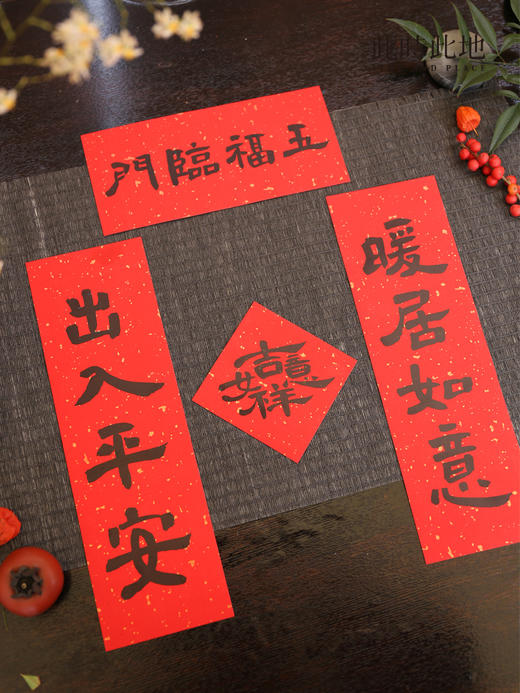 此时此地
五福臨門
暖居如意
出入平安
吉祥如意